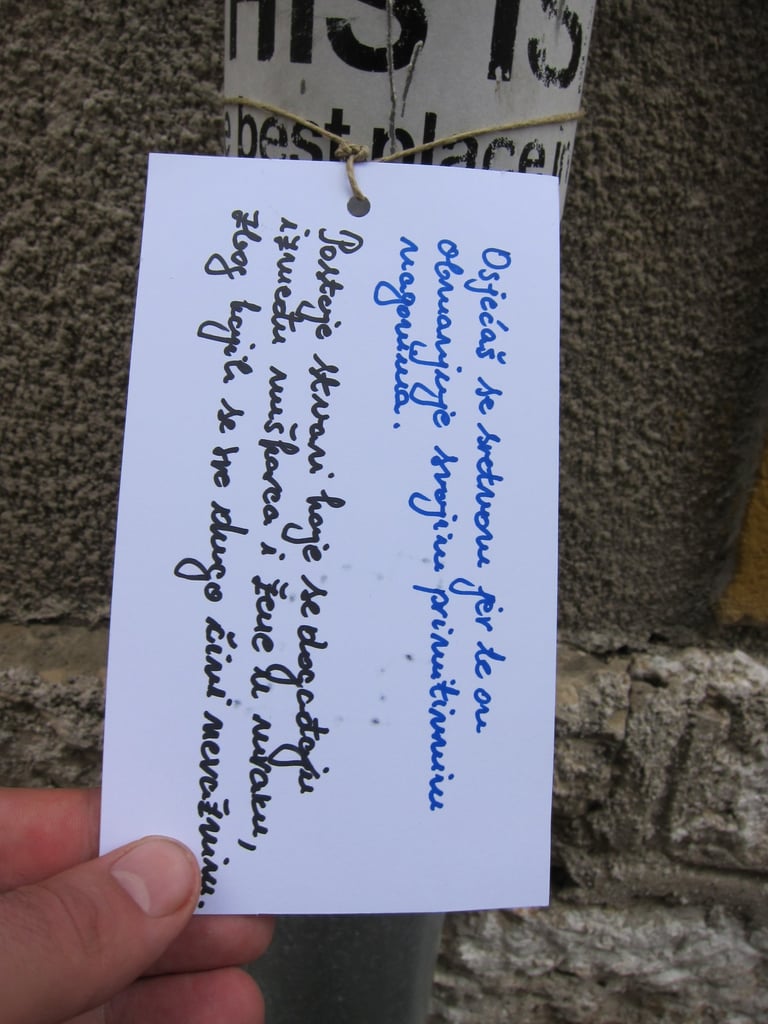 HIS IS
best place
Osjećaš se sretnom jer te on
obmanjuje svojim primitivnim
nagonima.
Postoje stvari koje se događaju
između muškarca i žene u mraku,
zbog kojih se sve drugo čini nevažnim.